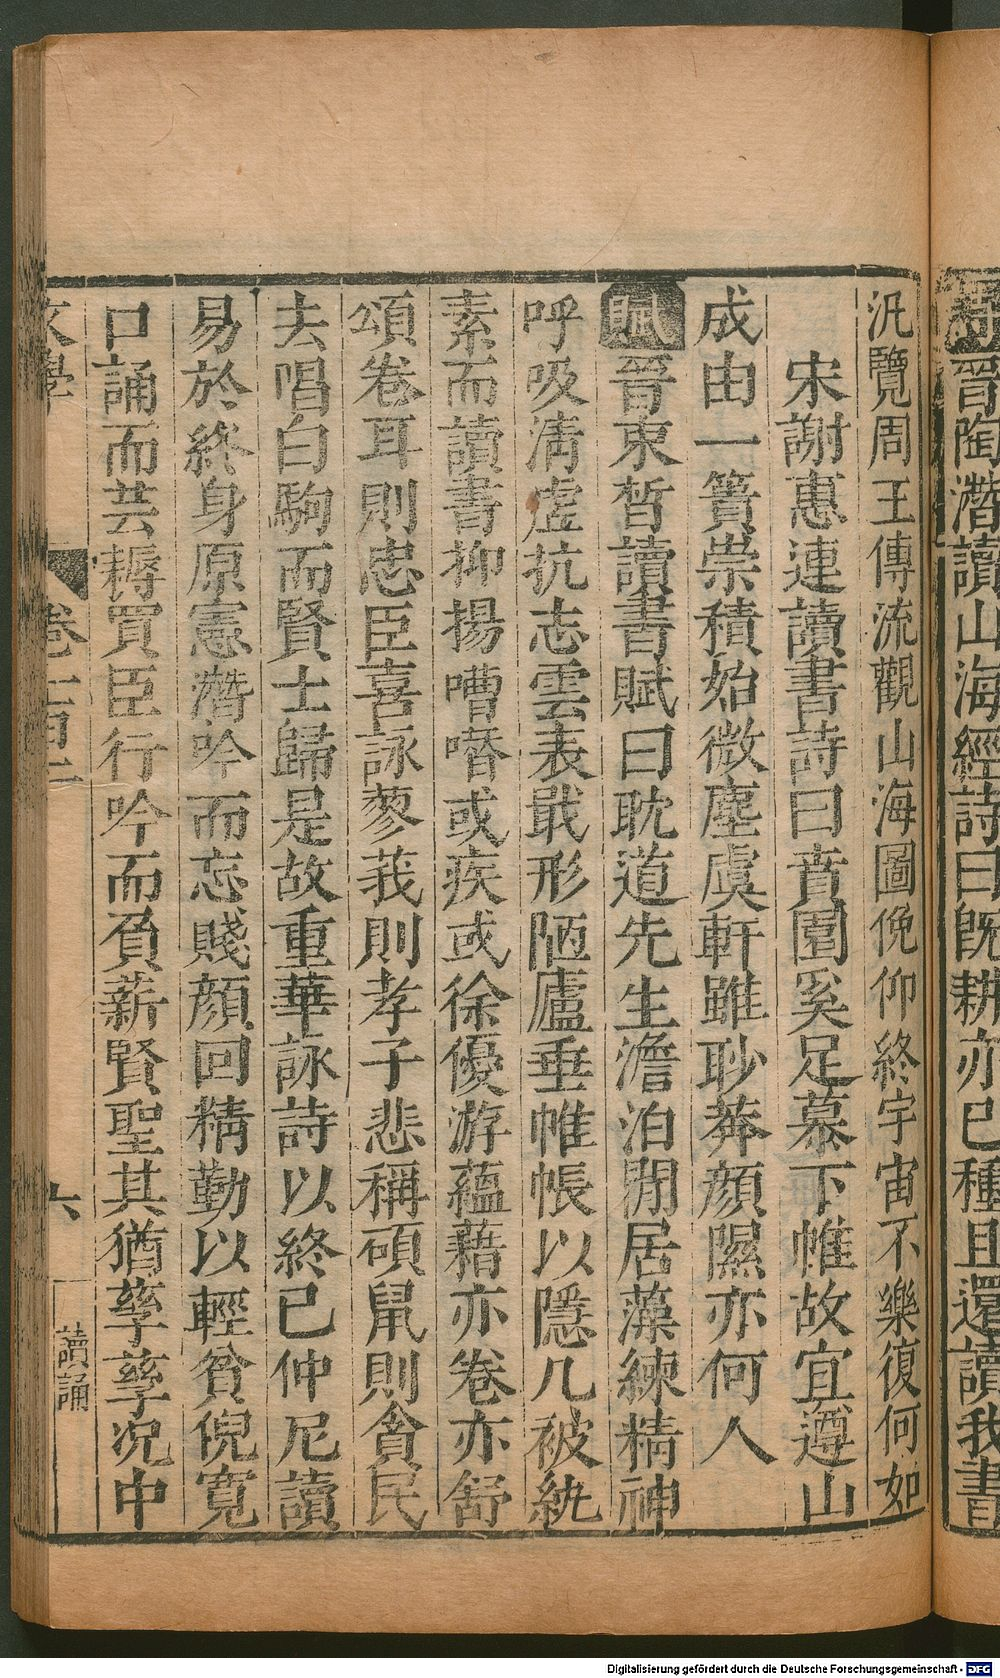 晉陶潛讀山海經詩曰旣耕亦已種且還讀我書
汎覽周王傳流觀山海圖俛仰終宇宙不樂復何如
宋謝惠連讀書詩曰賁園奚足慕下帷故宜遵山
成由一簣崇積始微塵虞軒雖眇莽顏隰亦何人
賦晉束皙讀書賦曰耽道先生澹泊閒居藻練精神
呼吸淸虛抗志雲表戢形陋廬垂帷帳以隱几被紈
素而讀書抑揚嘈囋或疾或徐優游蘊藉亦卷亦舒
頌卷耳則忠臣喜詠蓼莪則孝子悲稱碩鼠則貪民
去唱白駒而賢士歸是故重華詠詩以終已仲尼讀
易於終身原憲潛吟而忘賤顏回精勤以輕貧倪寬
口誦而芸耨買臣行吟而負薪賢聖其猶孳孳况中
文學 卷一百二 六 讀誦
Digitalisierung gefördert durch die Deutsche Forschungsgemeinschaft - DFG